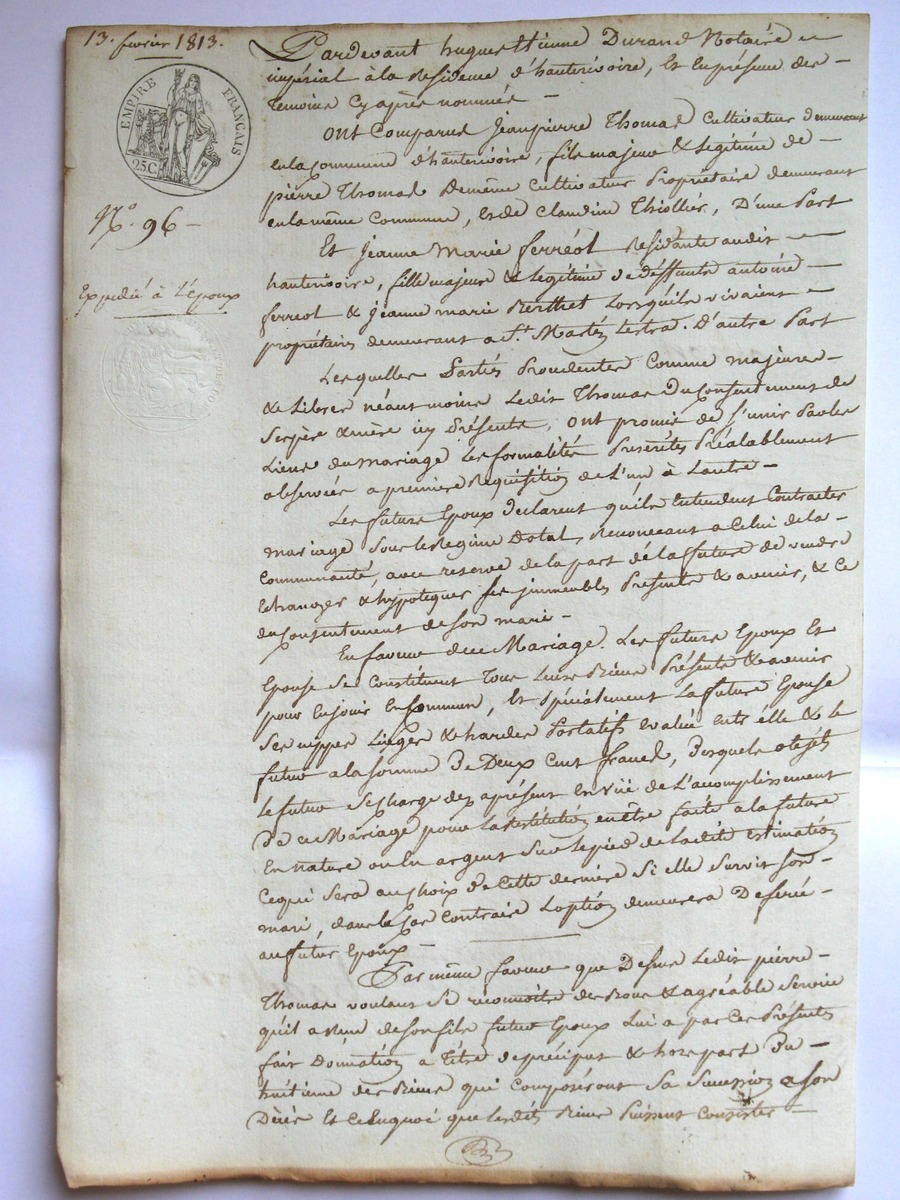 13. fevrier 1813.
EMPIRE FRANCAIS
25C
N.o 96 –
Expedié à L'Epoux
Pardevant hugues Etienne Durand Notaire
impérial à la Residence d'hauterivoire, Et En présence des
temoins Cy après nommés –
ont Comparus Jeanpierre Thomas Cultivateur demeurant
en la Commune d'hauterivoire, fils majeur & Legitime de
pierre Thomas Demême Cultivateur Propriétaire demeurant
en la même Commune, et de Claudine Thiollier, D'une Part
Et Jeanne Marie ferréol Residante audit
hauterivoire, fille majeure & Legitime de deffunts antoine
ferreol & Jeanne marie Berthet Lorsquils vivaient
propriétaires demeurant a St. Martin Lestra. D'autre Part
Lesquelles Parties Procedentes Comme majeures
& Libres néantmoins Ledit Thomas Du Consentement de
Ses père & mère icy Présents, ont promis de S'unir Par les
Liens du mariage Les formalités Prescrites Préalablement
observées a premiere Requisition de L'un à Lautre –
Les futurs Epoux declarent quils Entendent Contracter
mariage Sous le Regime Dotal, Renoncant a Celui de la
Communauté, avec reserve de la part de la future de vendre
Echanger & hypotequer Ses immeubles Présents & avenir, & Ce
du Consentement de son mari –
En faveur du Mariage. Les futurs Epoux Et
Epouse Se Constituent Tous Leurs Biens Présents & avenir
pour En jouir En Commun, Et Spécialement La future Epouse
Ses nippes Linges & hardes Portatifs Evalué entr'elle & le
futur a la Somme De Deux Cent francs, Desquels objets
Le futur Se Charge des aprésent En vüe de L'acomplissement
de ce Mariage pour La Restitution en être faite à La future
En nature ou En argent Sur Le pied de La dite Estimation
Cequi Sera au Choix de Cette derniere Si elle Survit son
mari, dans le Cas Contraire L'option demeurera Déferé
au futur Epoux –
Par même faveur que Dessus Ledit pierre
Thomas voulant Se réconnoitre des Bons & agréable Service
qu'il a Reçu de Son fils futur Epoux Lui a par Ces Présentes
fait Donnation a Titre de précipus & hors part Du
huitieme des Biens qui Composéront Sa Succession a Son
Décès Et En Ce quoi que Lesdits Biens Puissent Consister –